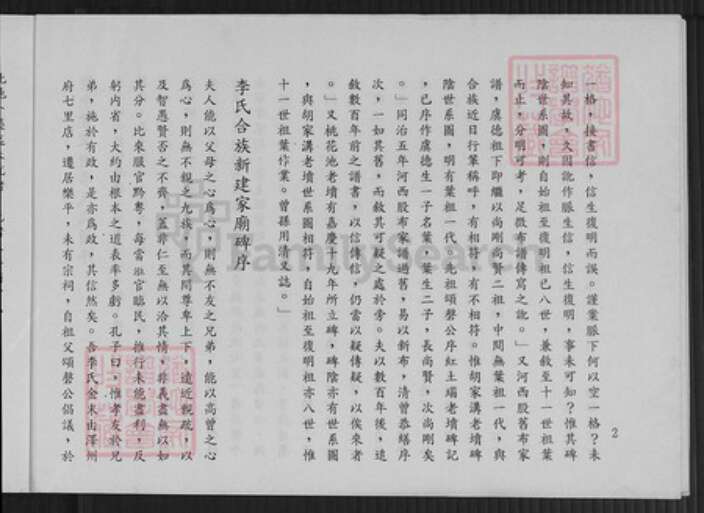 2
一格，接書信，信生復明而誤。謹案脈下何以空一格？未
知其故，久因訛作脈生信，信生復明，事未可知？惟其碑
陰世系圖，則自始祖至復明祖已八世，兼敘至十一世祖葉
而止，分明可考，足徵布譜傳寫之訛。」又河西股舊布家
譜，虞德祖下即繼以尚剛尚賢二祖，中間無葉祖一代，與
合族近日行輩稱呼，有相符，有不相符。惟胡家溝老墳碑
陰世系圖，明有葉祖一代，先祖頌聲公序紅土堖老墳碑記
，已序作虞德生一子名葉，葉生二子，長尚賢，次尚剛矣
。」同治五年河西股布家譜過舊，易以新布，清曾恭繕序
次，一如其舊，而敘其可疑之處於旁。夫以數百年後，追
敘數百年前之譜書，以信傳信，仍當以疑傳疑，以俟來者
。」又桃花池老墳有嘉慶十九年所立碑，碑陰亦有世系圖
，與胡家溝老墳世系圖相符，自始祖至復明祖亦八世，惟
十一世祖葉作業。曾孫用清又誌。」
李氏合族新建家廟碑序
夫人能以父母之心為心，則無不友之兄弟，能以高曾之心
為心，則無不親之九族，而其間尊卑上下，遠近親疏，以
及智愚賢否之不齊，蓋非仁至無以洽其情，非義盡無以如
其分。比來服官黔粵，每當涖官臨民，推行未能盡利，反
躬內省，大約由根本之道表率多虧。孔子曰，惟孝友於兄
弟，施於有政，是亦為政，其信然矣。吾李氏金末由澤州
府七里店，遷居樂平，未有宗祠，自祖父頌聲公倡議，於
FamilySearch